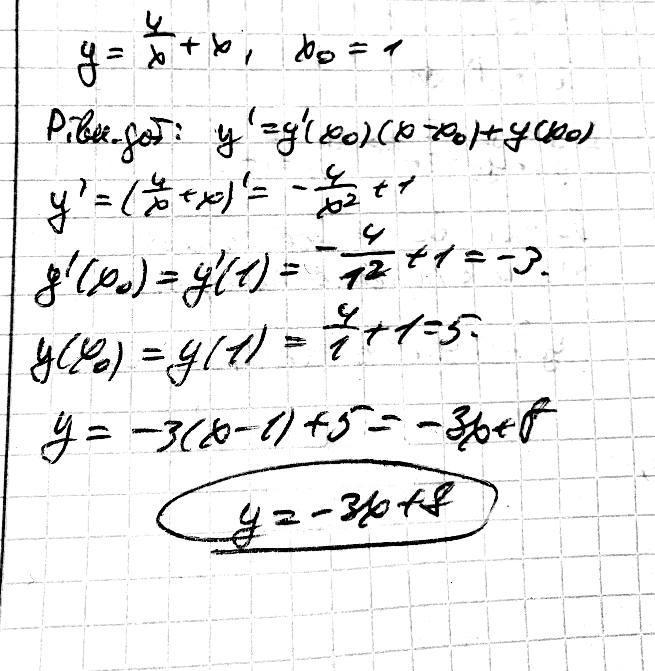 y = 4/x + x, x₀ = 1
Рівн. дот: y' = y'(x₀)(x-x₀)+y(x₀)
y' = (4/x + x)' = -4/x² + 1
y'(x₀) = y'(1) = -4/1² + 1 = -3.
y(x₀) = y(1) = 4/1 + 1 = 5.
y = -3(x-1)+5 = -3x+8
y = -3x+8